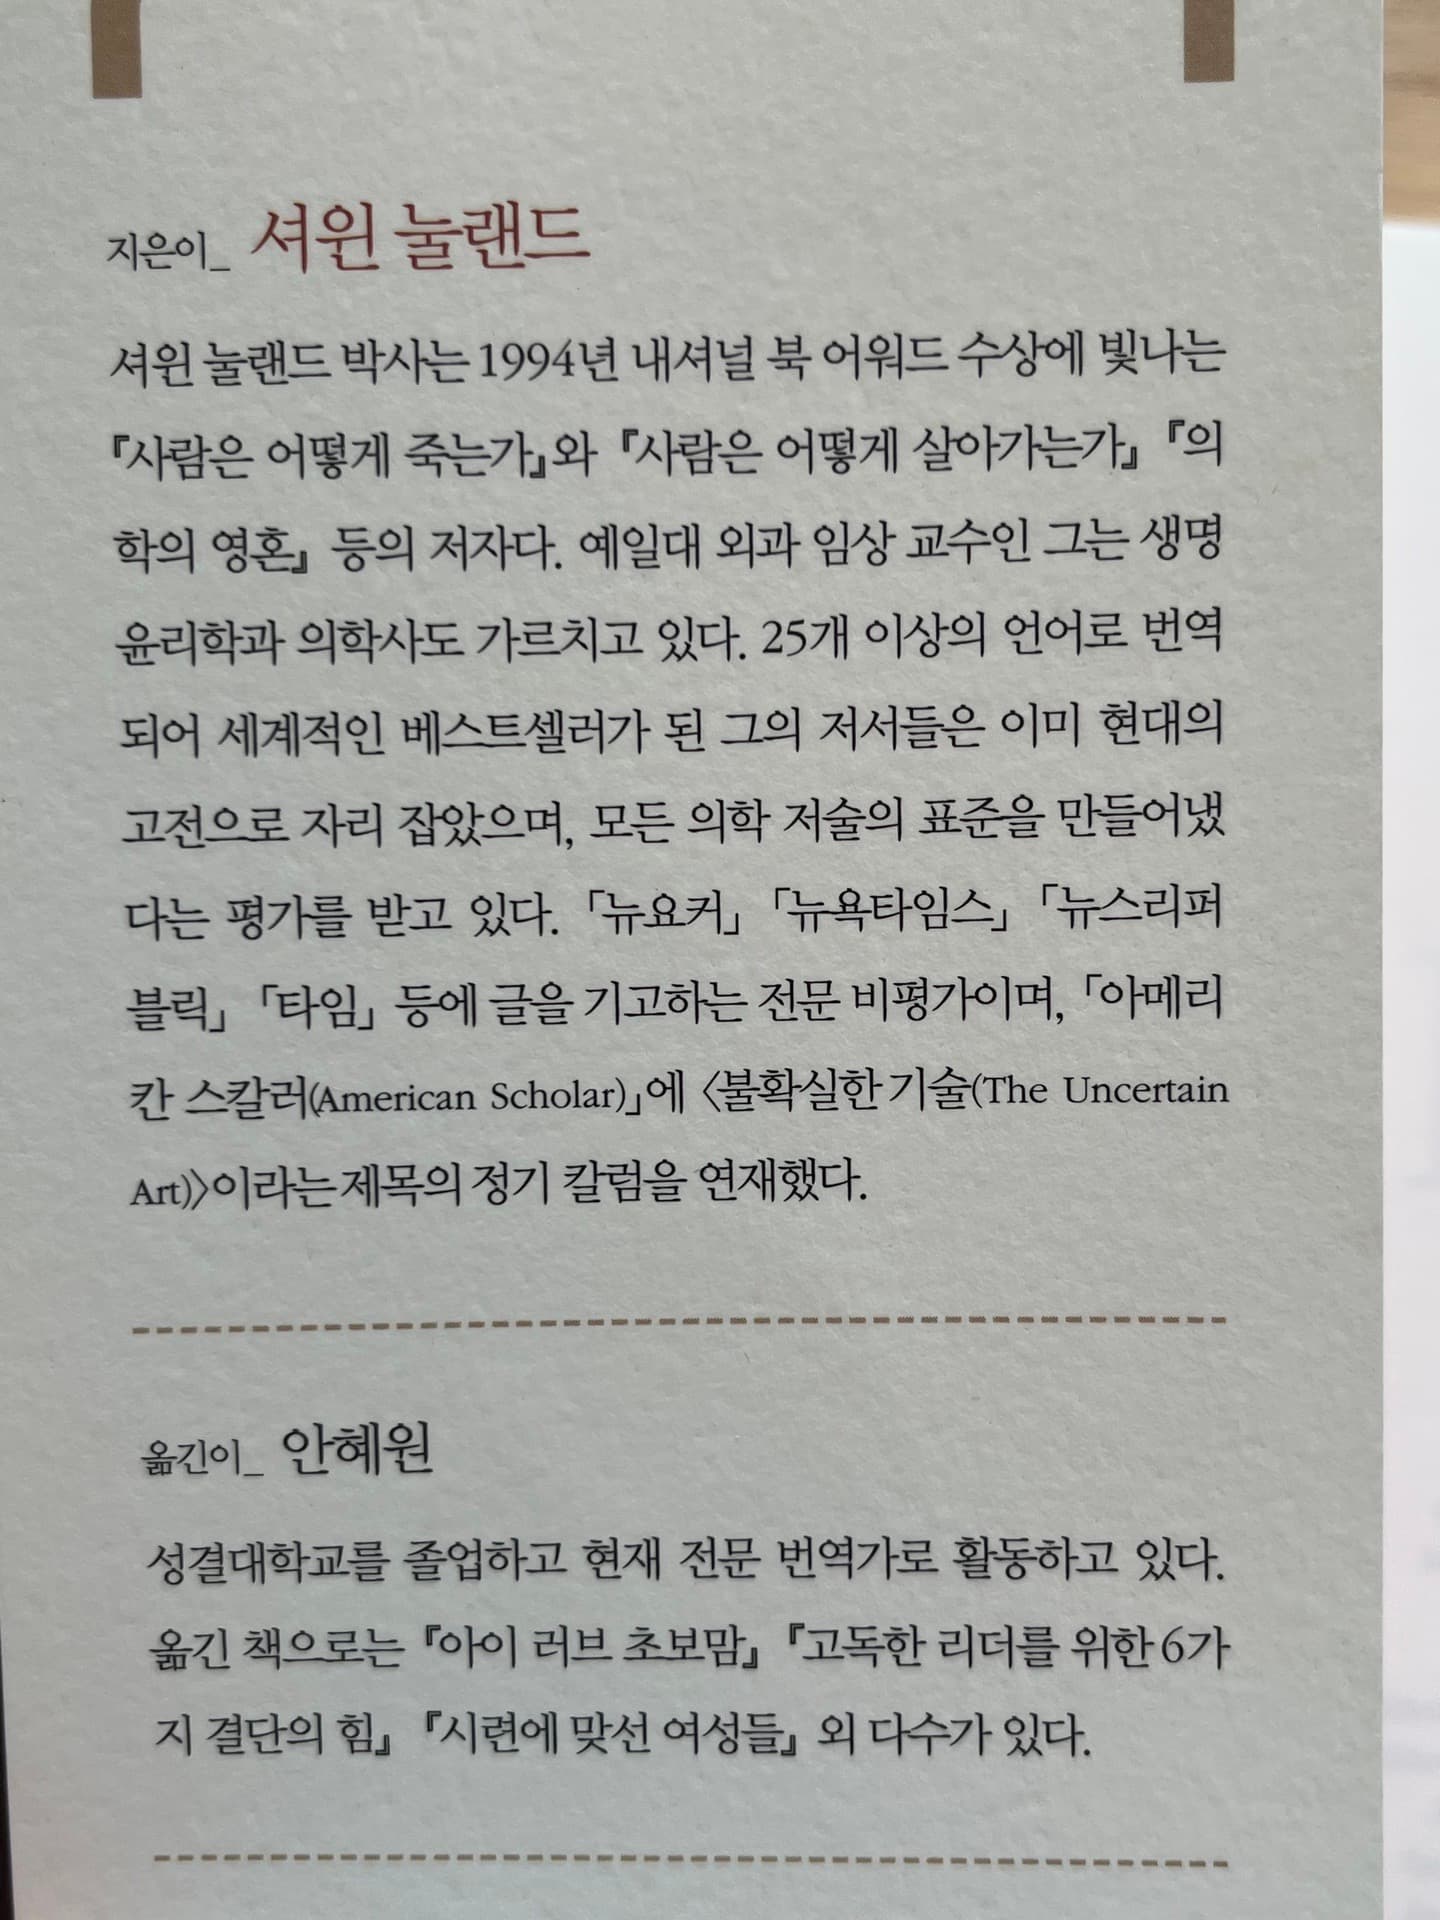 지은이_ 셔윈 눌랜드
셔윈 눌랜드 박사는 1994년 내셔널 북 어워드 수상에 빛나는
『사람은 어떻게 죽는가』와 『사람은 어떻게 살아가는가』 『의
학의 영혼』 등의 저자다. 예일대 외과 임상 교수인 그는 생명
윤리학과 의학사도 가르치고 있다. 25개 이상의 언어로 번역
되어 세계적인 베스트셀러가 된 그의 저서들은 이미 현대의
고전으로 자리 잡았으며, 모든 의학 저술의 표준을 만들어냈
다는 평가를 받고 있다. 「뉴요커」 「뉴욕타임스」 「뉴스리퍼
블릭」 「타임」 등에 글을 기고하는 전문 비평가이며, 「아메리
칸 스칼러(American Scholar)」에 〈불확실한 기술(The Uncertain
Art)〉이라는 제목의 정기 칼럼을 연재했다.
옮긴이_ 안혜원
성결대학교를 졸업하고 현재 전문 번역가로 활동하고 있다.
옮긴 책으로는 『아이 러브 초보맘』 『고독한 리더를 위한 6가
지 결단의 힘』 『시련에 맞선 여성들』 외 다수가 있다.